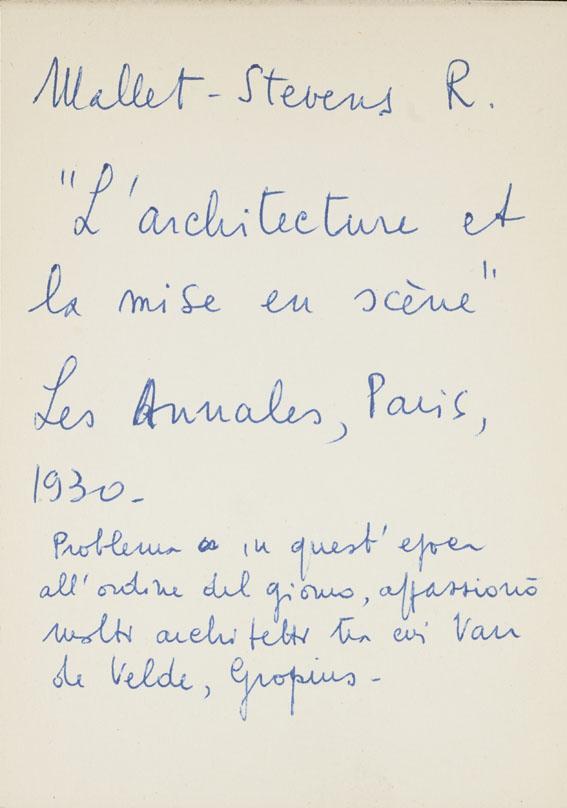 Mallet-Stevens R.
"L'architecture et
la mise en scène"
Les Annales, Paris,
1930-
Problema in quest'epoca
all'ordine del giorno, appassionò
molti architetti tra cui Van
de Velde, Gropius-